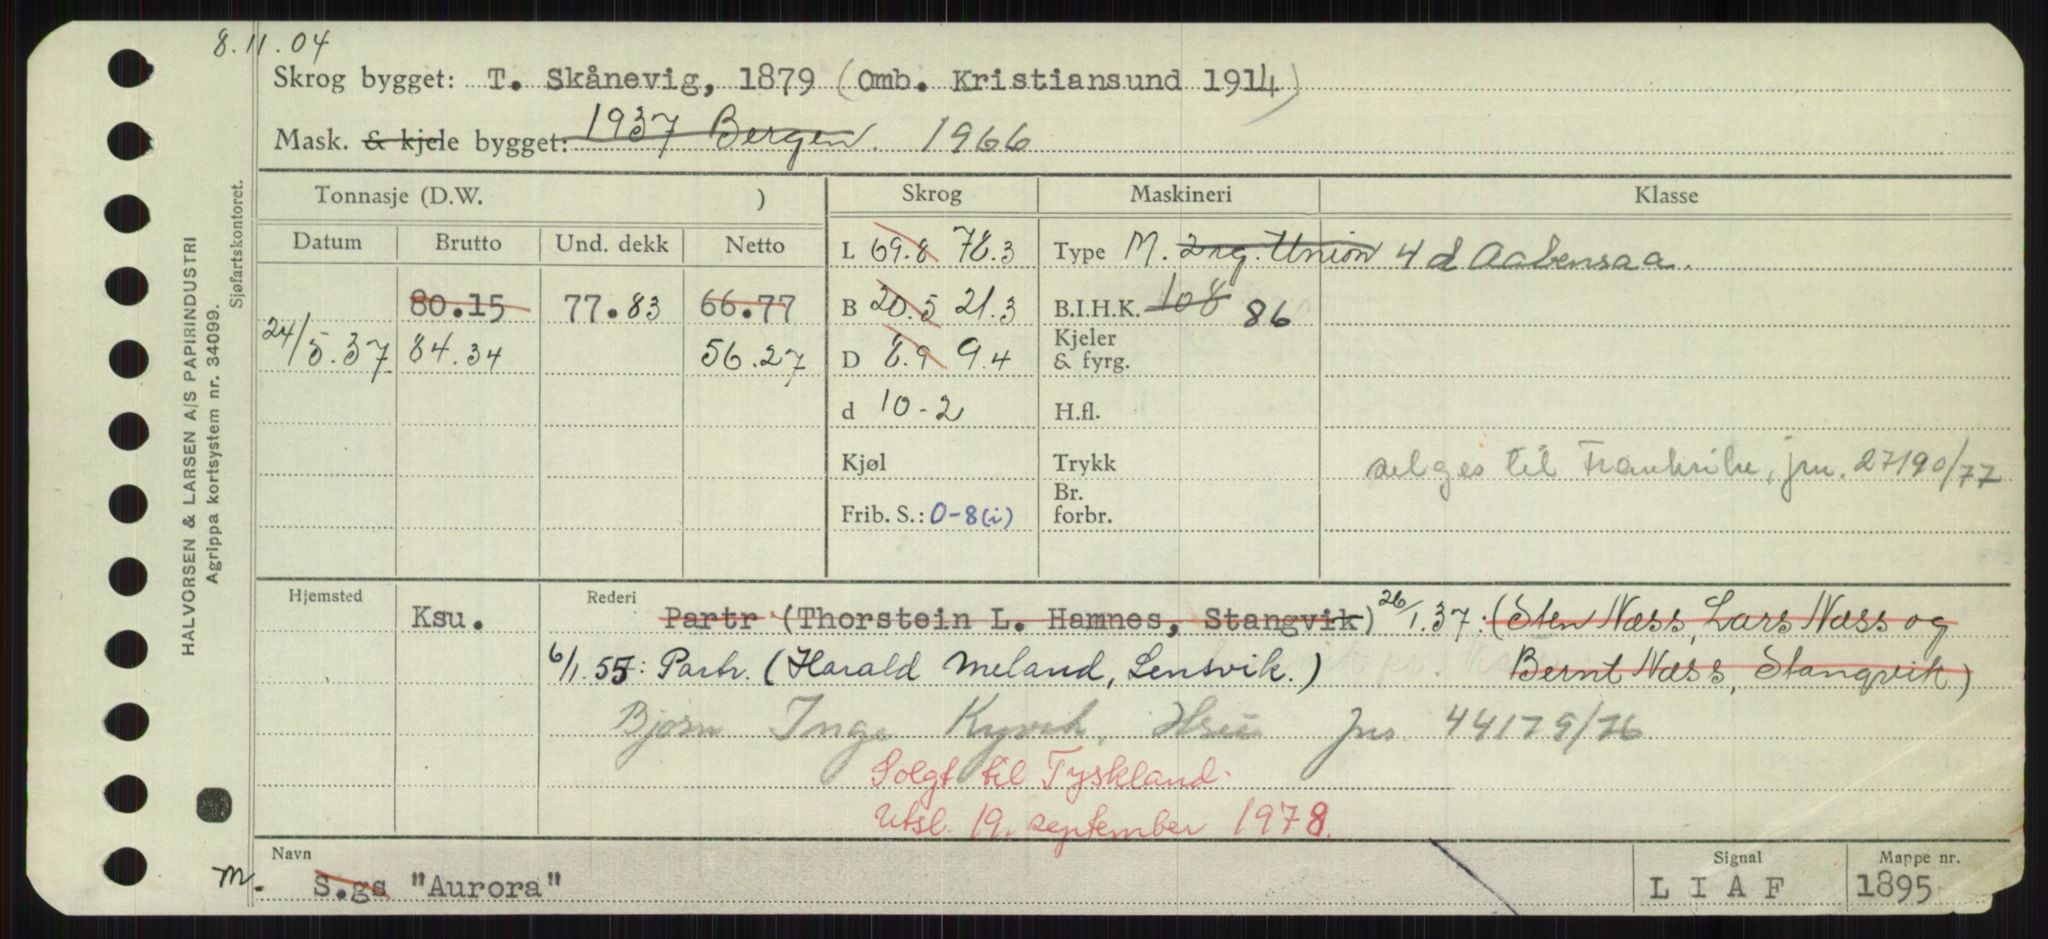 8.11.04
Skrog bygget: T. Skånevig, 1879 (Omb. Kristiansund 1914)
Mask. & kjele bygget: 1937 Bergen. 1966
Tonnasje (D.W. ) Skrog Maskineri Klasse
Datum Brutto Und. dekk Netto L 69.8 78.3 Type M. 2 Union 4 d Aabenraa.
80.15 77.83 66.77 B 20.5 21.3 B.I.H.K. 108 86
24/5.37 84.34 56.27 D 8.9 9.4 Kjeler & fyrg.
d 10-2 H.fl.
Kjøl Trykk selges til Frankrike, jnr. 27190/77
Frib. S.: 0-8(i) Br. forbr.
Hjemsted Ksu. Rederi Partr (Thorstein L. Hamnes, Stangvik) 26/1.37: (Sten Næss, Lars Næss og
6/1.55: Partr. (Harald Meland, Lensvik.) Bernt Næss, Stangvik)
Bjørn Inge Kyvik, 44179/76
Solgt til Tyskland.
Utsl. 19. september 1978.
Navn Signal Mappe nr.
M. S.gs "Aurora" L I A F 1895
HALVORSEN & LARSEN A/S PAPIRINDUSTRI
Agrippa kortsystem nr. 34099.
Sjøfartskontoret.